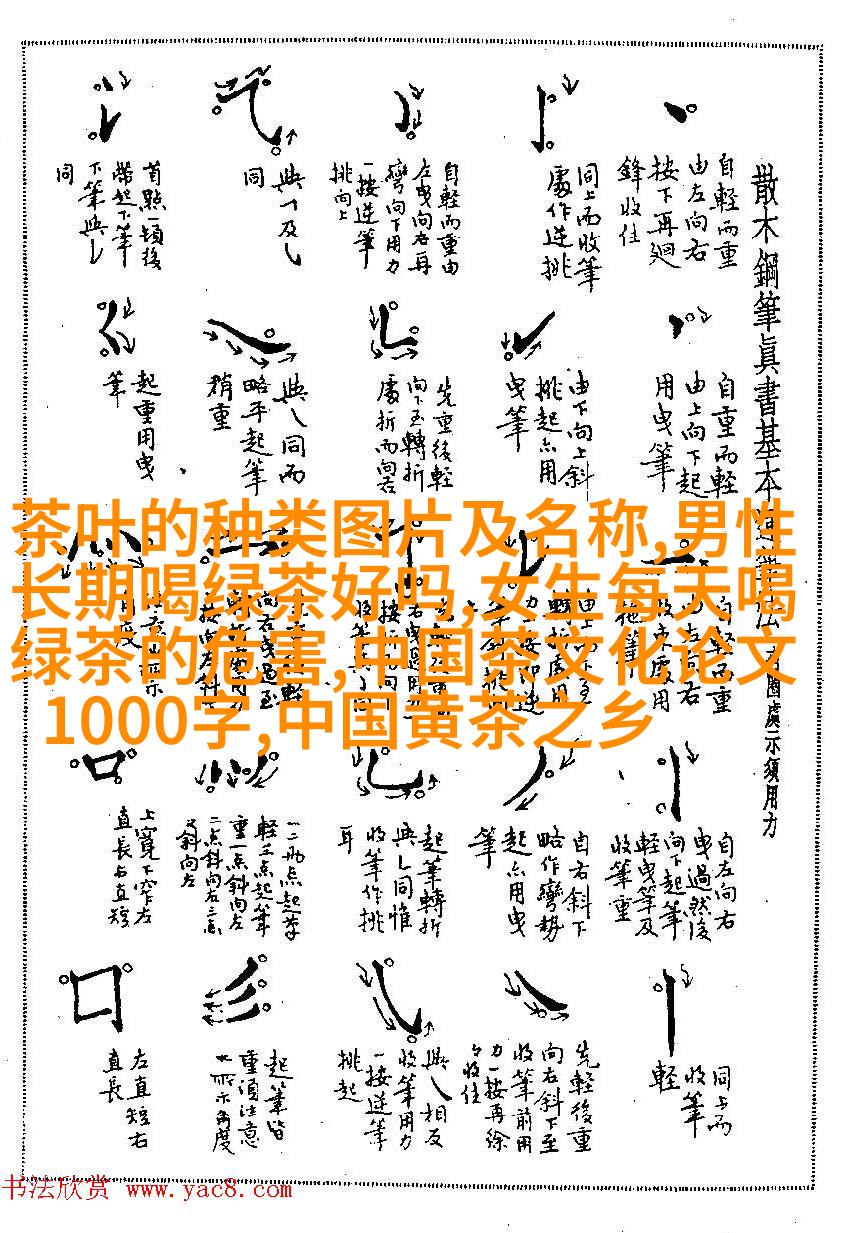 散木鋼筆真書基本
自輕而重
由左向右
按下再迴
鋒收住
同上而收筆
處作逆挑
自輕而重由
左曳向右再
彎向下用力
一按逆筆
挑向上
與㇀及㇂
同
首點一頓後
帶起下筆
下筆與㇂
同
自重而輕
由上向下起
用曳筆
由下向上斜
挑起亦用
曳筆
先重後輕
向下至轉折
處折而向右
與㇏同而
略平起筆
稍重
起重用曳
筆
茶叶的种类图片及名称,男性
长期喝绿茶好吗,女生每天喝
绿茶的危害,中国茶文化论文
1000字,中国黄茶之乡
圈處示須用力
自左向右
曳過然後
向下起筆
輕曳筆及
收筆重
自右斜下
略作彎勢
起亦用曳
筆
起筆轉折
與㇄同惟
收筆作挑
耳
重一点斜向左
二点斜向右三点
斜向左
上寬下窄左
直長右直短
同上而
收筆
輕
先輕後重
向右斜下至
收筆前用
力一按再徐
徐收住
與㇏相反
收筆用力
一按逆筆
挑起
起筆皆
重須注意
所示角度
左直短右
直長
书法欣赏 www.yac8.com